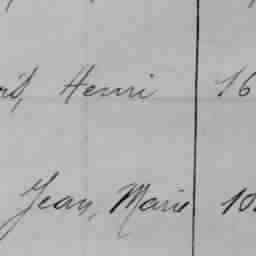 Henri 16
Jean, Marie 10